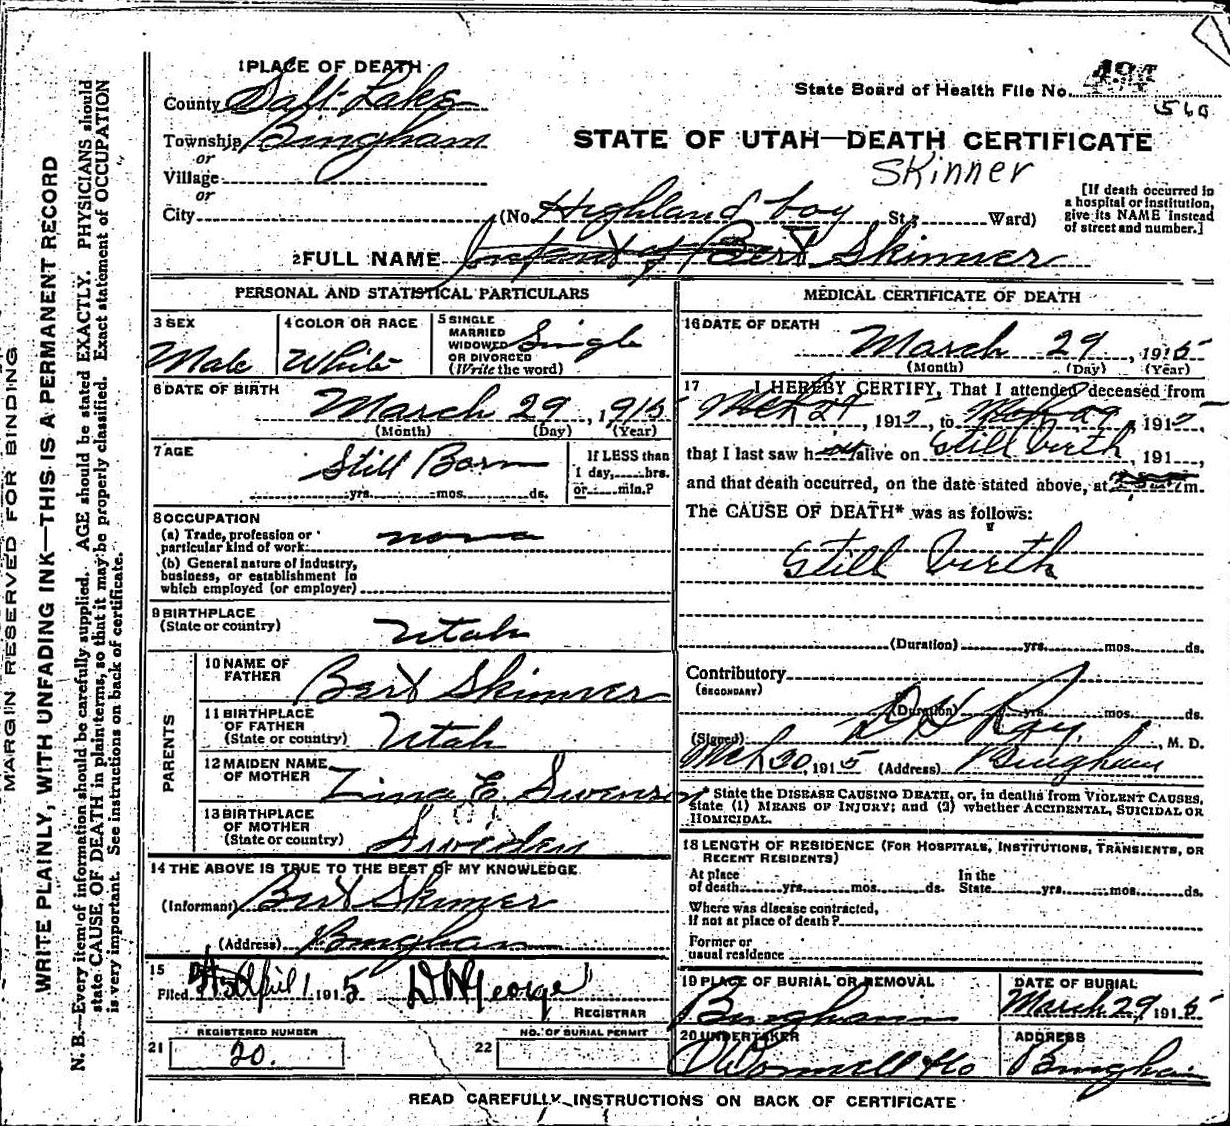 MARGIN RESERVED FOR BINDING
WRITE PLAINLY, WITH UNFADING INK—THIS IS A PERMANENT RECORD
N. B.—Every item of information should be carefully supplied. AGE should be stated EXACTLY. PHYSICIANS should
state CAUSE OF DEATH in plain terms, so that it may be properly classified. Exact statement of OCCUPATION
is very important. See instructions on back of certificate.
1 PLACE OF DEATH
County Salt Lake
State Board of Health File No.
560
Township Bingham
STATE OF UTAH—DEATH CERTIFICATE
or
Village
Skinner
or
City (No. Highland boy St.; Ward)
[If death occurred in
a hospital or institution,
give its NAME instead
of street and number.]
2 FULL NAME Infant of Bert Skinner
PERSONAL AND STATISTICAL PARTICULARS
3 SEX
Male
4 COLOR OR RACE
White
5 SINGLE
MARRIED
WIDOWED
OR DIVORCED
(Write the word)
Single
6 DATE OF BIRTH
March 29, 1915
(Month) (Day) (Year)
7 AGE
Still Born
yrs. mos. ds.
If LESS than
1 day, hrs.
or min.?
8 OCCUPATION
(a) Trade, profession or
particular kind of work: none
(b) General nature of industry,
business, or establishment in
which employed (or employer)
9 BIRTHPLACE
(State or country)
Utah
PARENTS
10 NAME OF
FATHER
Bert Skinner
11 BIRTHPLACE
OF FATHER
(State or country)
Utah
12 MAIDEN NAME
OF MOTHER
Lina E. Swenson
13 BIRTHPLACE
OF MOTHER
(State or country)
Swiden
14 THE ABOVE IS TRUE TO THE BEST OF MY KNOWLEDGE
(Informant) Bert Skinner
(Address) Bingham
15
Filed April 1 1915 D W George
REGISTRAR
REGISTERED NUMBER
21 20.
NO. OF BURIAL PERMIT
22
MEDICAL CERTIFICATE OF DEATH
16 DATE OF DEATH
March 29, 1915
(Month) (Day) (Year)
17 I HEREBY CERTIFY, That I attended deceased from
Mch 29, 1915, to 29, 1915,
that I last saw him alive on Still birth, 191 ,
and that death occurred, on the date stated above, at m.
The CAUSE OF DEATH* was as follows:
Still birth
(Duration) yrs. mos. ds.
Contributory
(SECONDARY)
(Duration) yrs. mos. ds.
(Signed) D H Ray, M. D.
Mch 30, 1915 (Address) Bingham
* State the DISEASE CAUSING DEATH, or, in deaths from VIOLENT CAUSES,
state (1) MEANS OF INJURY; and (2) whether ACCIDENTAL, SUICIDAL OR
HOMICIDAL.
18 LENGTH OF RESIDENCE (FOR HOSPITALS, INSTITUTIONS, TRANSIENTS, OR
RECENT RESIDENTS)
At place
of death yrs. mos. ds.
In the
State yrs. mos. ds.
Where was disease contracted,
if not at place of death?
Former or
usual residence
19 PLACE OF BURIAL OR REMOVAL
Bingham
DATE OF BURIAL
March 29 1915
20 UNDERTAKER
O'Donnell & Co
ADDRESS
Bingham
READ CAREFULLY INSTRUCTIONS ON BACK OF CERTIFICATE